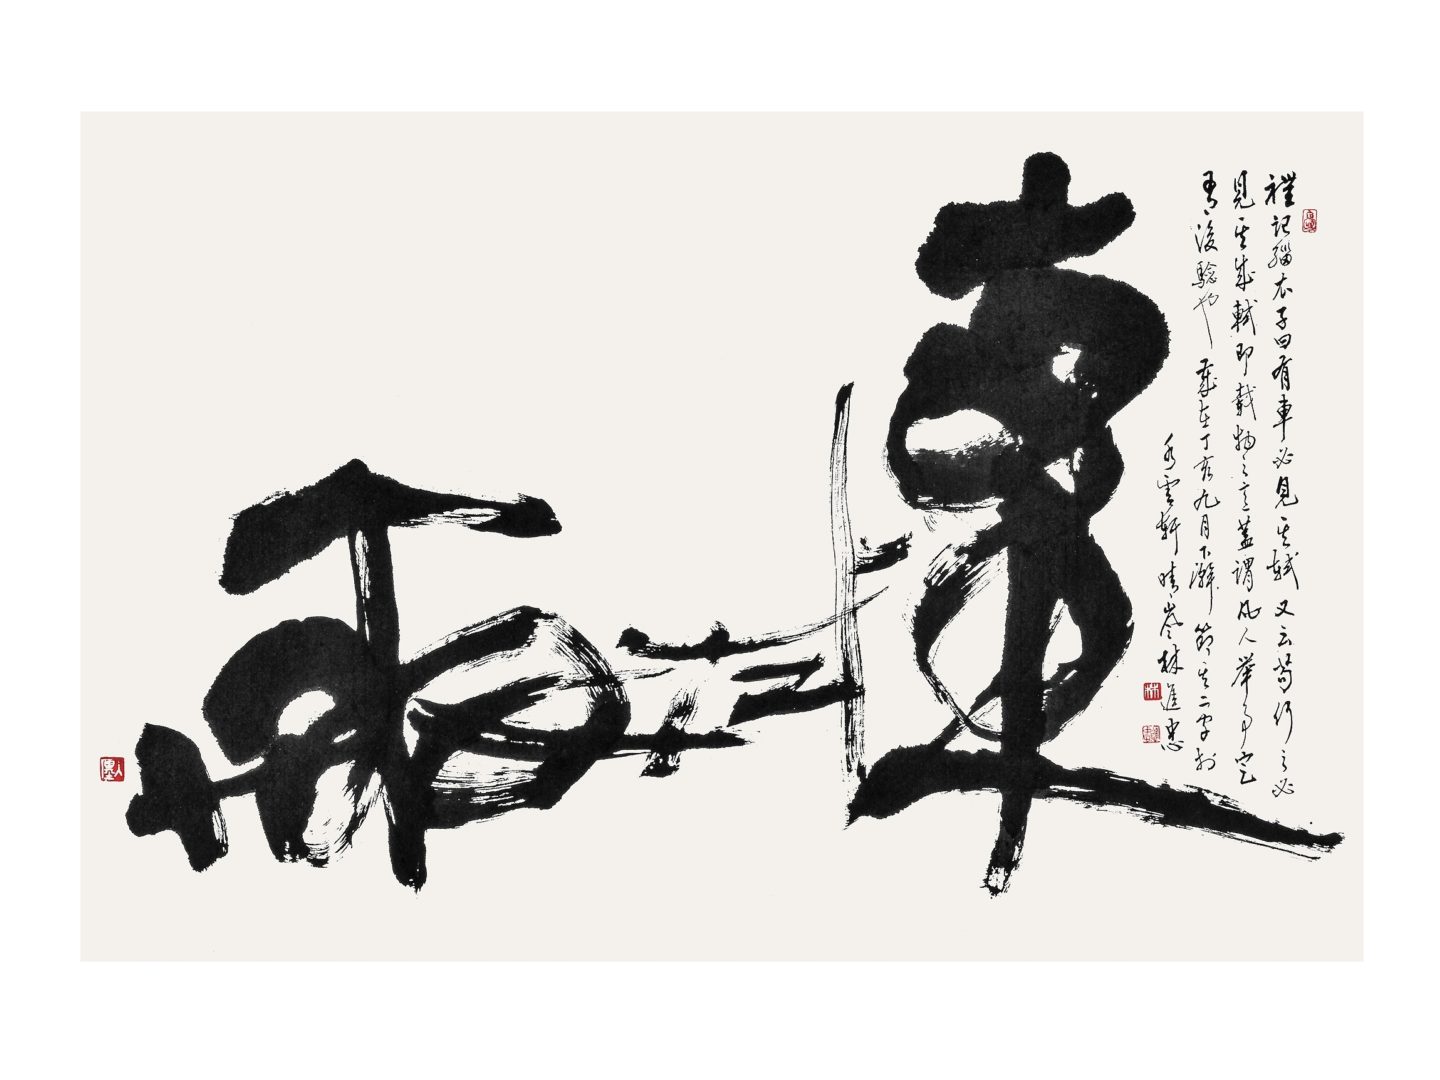 禮記緇衣子曰有車必見其軾又云苟行之必
見其成軾即載物之意蓋謂凡人舉事定
有後驗也 歲在丁亥九月下澣節其二字於
水雲軒 晴嵐林進忠